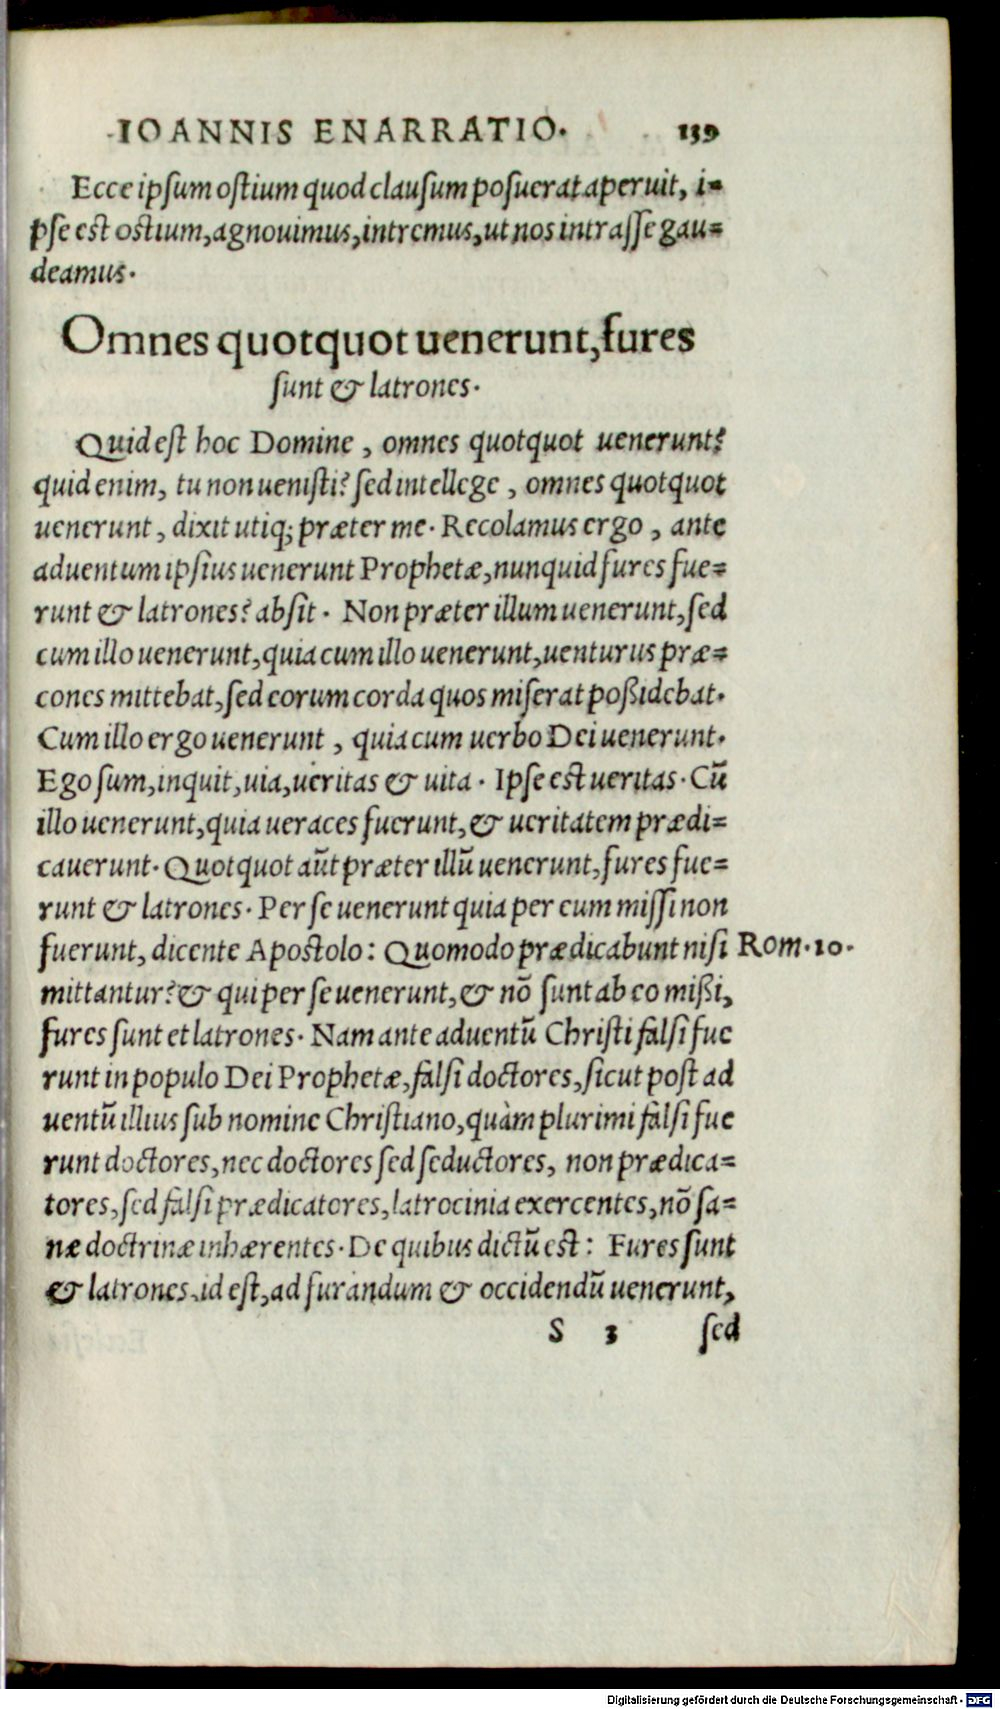 IOANNIS ENARRATIO. 139
Ecce ipsum ostium quod clausum posuerat aperuit, i-
pse est ostium, agnouimus, intremus, ut nos intrasse gau-
deamus.
Omnes quotquot uenerunt, fures
sunt & latrones.
Quid est hoc Domine, omnes quotquot uenerunt?
quid enim, tu non uenisti? sed intellege, omnes quotquot
uenerunt, dixit utiq; præter me. Recolamus ergo, ante
aduentum ipsius uenerunt Prophetæ, nunquid fures fue-
runt & latrones? absit. Non præter illum uenerunt, sed
cum illo uenerunt, quia cum illo uenerunt, uenturus præ-
cones mittebat, sed eorum corda quos miserat poßidebat.
Cum illo ergo uenerunt, quia cum uerbo Dei uenerunt.
Ego sum, inquit, uia, ueritas & uita. Ipse est ueritas. Cū
illo uenerunt, quia ueraces fuerunt, & ueritatem prædi-
cauerunt. Quotquot aūt præter illū uenerunt, fures fue-
runt & latrones. Per se uenerunt quia per eum missi non
fuerunt, dicente Apostolo: Quomodo prædicabunt nisi Rom. 10.
mittantur? & qui per se uenerunt, & nō sunt ab eo mißi,
fures sunt et latrones. Nam ante aduentū Christi falsi fue
runt in populo Dei Prophetæ, falsi doctores, sicut post ad
uentū illius sub nomine Christiano, quàm plurimi falsi fue
runt doctores, nec doctores sed seductores, non prædica-
tores, sed falsi prædicatores, latrocinia exercentes, nō sa-
næ doctrinæ inhærentes. De quibus dictū est: Fures sunt
& latrones, id est, ad furandum & occidendū uenerunt,
S 3 sed
Digitalisierung gefördert durch die Deutsche Forschungsgemeinschaft - DFG